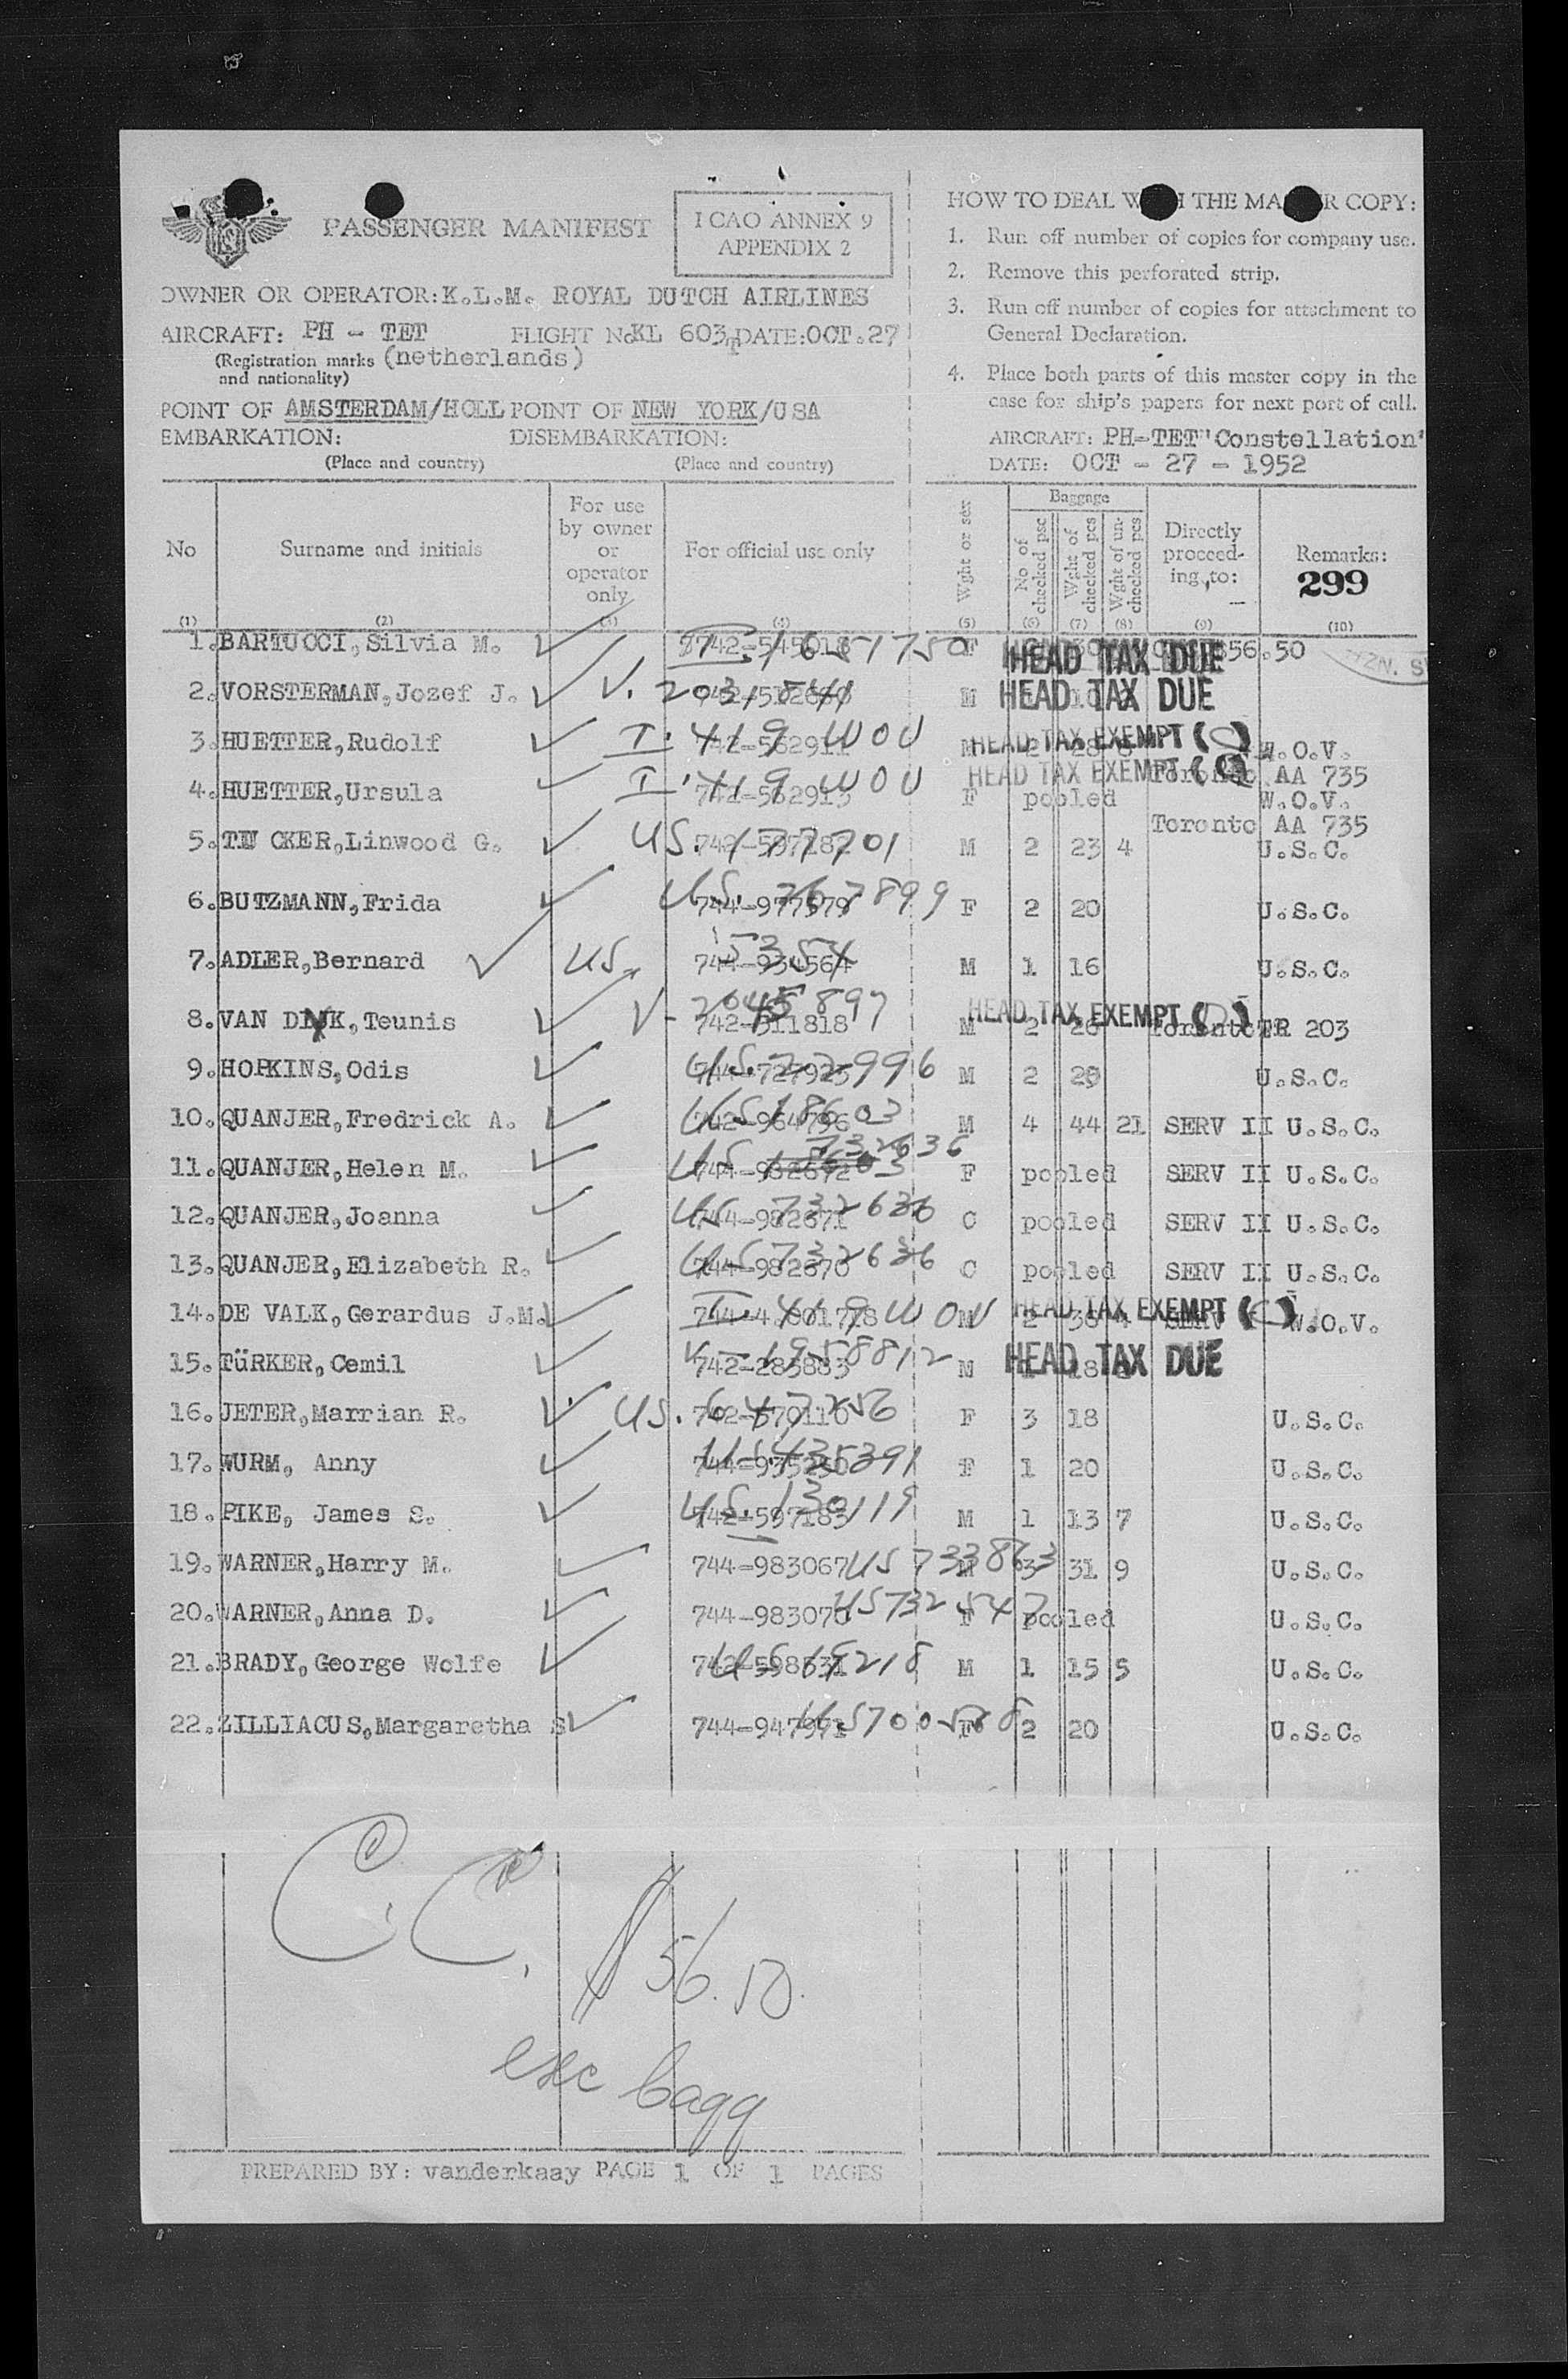 PASSENGER MANIFEST
I CAO ANNEX 9
APPENDIX 2
OWNER OR OPERATOR: K.L.M. ROYAL DUTCH AIRLINES
AIRCRAFT: PH - TET FLIGHT No KL 603 DATE: OCT. 27
(Registration marks (netherlands)
and nationality)
POINT OF AMSTERDAM/HOLL POINT OF NEW YORK/USA
EMBARKATION: DISEMBARKATION:
(Place and country) (Place and country)
HOW TO DEAL THE COPY:
1. Run off number of copies for company use.
2. Remove this perforated strip.
3. Run off number of copies for attachment to
General Declaration.
4. Place both parts of this master copy in the
case for ship's papers for next port of call.
AIRCRAFT: PH-TET "Constellation"
DATE: OCT - 27 - 1952
No Surname and initials For use by owner or operator only For official use only Wght or sex Baggage No of checked psc Wght of checked pcs Wght of un-checked pcs Directly proceed-ing to: Remarks:
299
(1) (2) (3) (4) (5) (6) (7) (8) (9) (10)
1. BARTUCCI, Silvia M. F HEAD TAX DUE 56.50
2. VORSTERMAN, Jozef J. V. M HEAD TAX DUE
3. HUETTER, Rudolf I. 419 WOV M HEAD TAX EXEMPT 2 28 W.O.V.
Toronto AA 735
4. HUETTER, Ursula I. 419 WOV HEAD TAX EXEMPT F pooled W.O.V.
Toronto AA 735
5. TUCKER, Linwood G. US. M 2 23 4 U.S.C.
6. BUTZMANN, Frida U.S. F 2 20 U.S.C.
7. ADLER, Bernard US. M 1 16 U.S.C.
8. VAN DYK, Teunis V- 742-511818 M HEAD TAX EXEMPT 2 26 Toronto TR 203
9. HOPKINS, Odis M 2 20 U.S.C.
10. QUANJER, Fredrick A. M 4 44 21 SERV II U.S.C.
11. QUANJER, Helen M. F pooled SERV II U.S.C.
12. QUANJER, Joanna 744-982671 US 732636 C pooled SERV II U.S.C.
13. QUANJER, Elizabeth R. 744-982670 US 732636 C pooled SERV II U.S.C.
14. DE VALK, Gerardus J.M. I. 419 WOV M HEAD TAX EXEMPT W.O.V.
15. TüRKER, Cemil V-1958812 742-283883 M HEAD TAX DUE 18
16. JETER, Marrian R. US. F 3 18 U.S.C.
17. WURM, Anny F 1 20 U.S.C.
18. PIKE, James S. US. 130119 742-597183 M 1 13 7 U.S.C.
19. WARNER, Harry M. 744-983067 M 3 31 9 U.S.C.
20. WARNER, Anna D. 744-983070 F pooled U.S.C.
21. BRADY, George Wolfe M 1 15 5 U.S.C.
22. ZILLIACUS, Margaretha S F 2 20 U.S.C.
C.C. $56.50.
exc bagg
PREPARED BY: vanderkaay PAGE 1 OF 1 PAGES